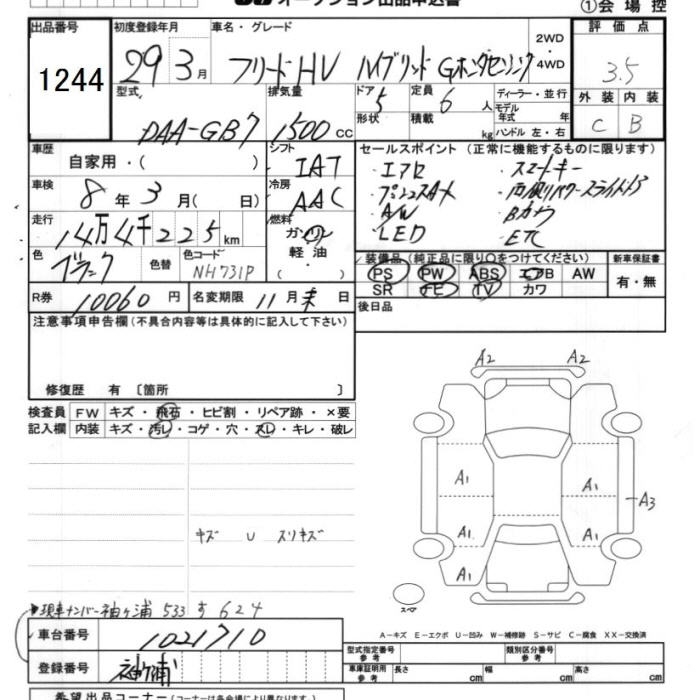 オークション出品申込書
①会場控
出品番号
1244
初度登録年月
29 3月
車名・グレード
フリードHV ハイブリッドGホンダセンシング
2WD
・
4WD
評価点
3.5
型式
DAA-GB7
排気量
1500 CC
ドア
5
形状
定員
6 人
積載
kg
ディーラー・並行
モデル
年式 年
ハンドル 左・右
外装 内装
C B
車歴
自家用・( )
シフト
IAT
車検
8年3月( 日)
冷房
AAC
走行
14万4千225km
燃料
ガソリン
軽油
( ・ )
色
ブラック
色替
色コード
NH731P
R券
10060円
名変期限
11月末日
セールスポイント (正常に機能するものに限ります)
・エアロ ・スマートキー
・プッシュスタート ・両側パワースライドドア
・A/W ・Bカメラ
・LED ・ETC
装備品 (純正品に限り○をつけてください)
新車保証書
PS PW ABS エアB AW
SR ナビ TV カワ
有・無
後日品
注意事項申告欄(不具合内容等は具体的に記入して下さい)
修復歴 有 〔箇所 〕
検査員
記入欄
FW キズ・飛石・ヒビ割・リペア跡・×要
内装 キズ・汚レ・コゲ・穴・スレ・キレ・破レ
キズ U スリキズ
A2 A2
A1 A1 A3
A1 A1
A1
スペア
現車ナンバー袖ヶ浦 533 す 624
A−キズ E−エクボ U−凹み W−補修跡 S−サビ C−腐食 XX−交換済
車台番号
1021710
登録番号
袖ヶ浦
型式指定番号
参考
類別区分番号
参考
車庫証明用
参考
長さ cm
幅 cm
高さ cm
希望出品コーナー(コーナーは各会場により異なります)